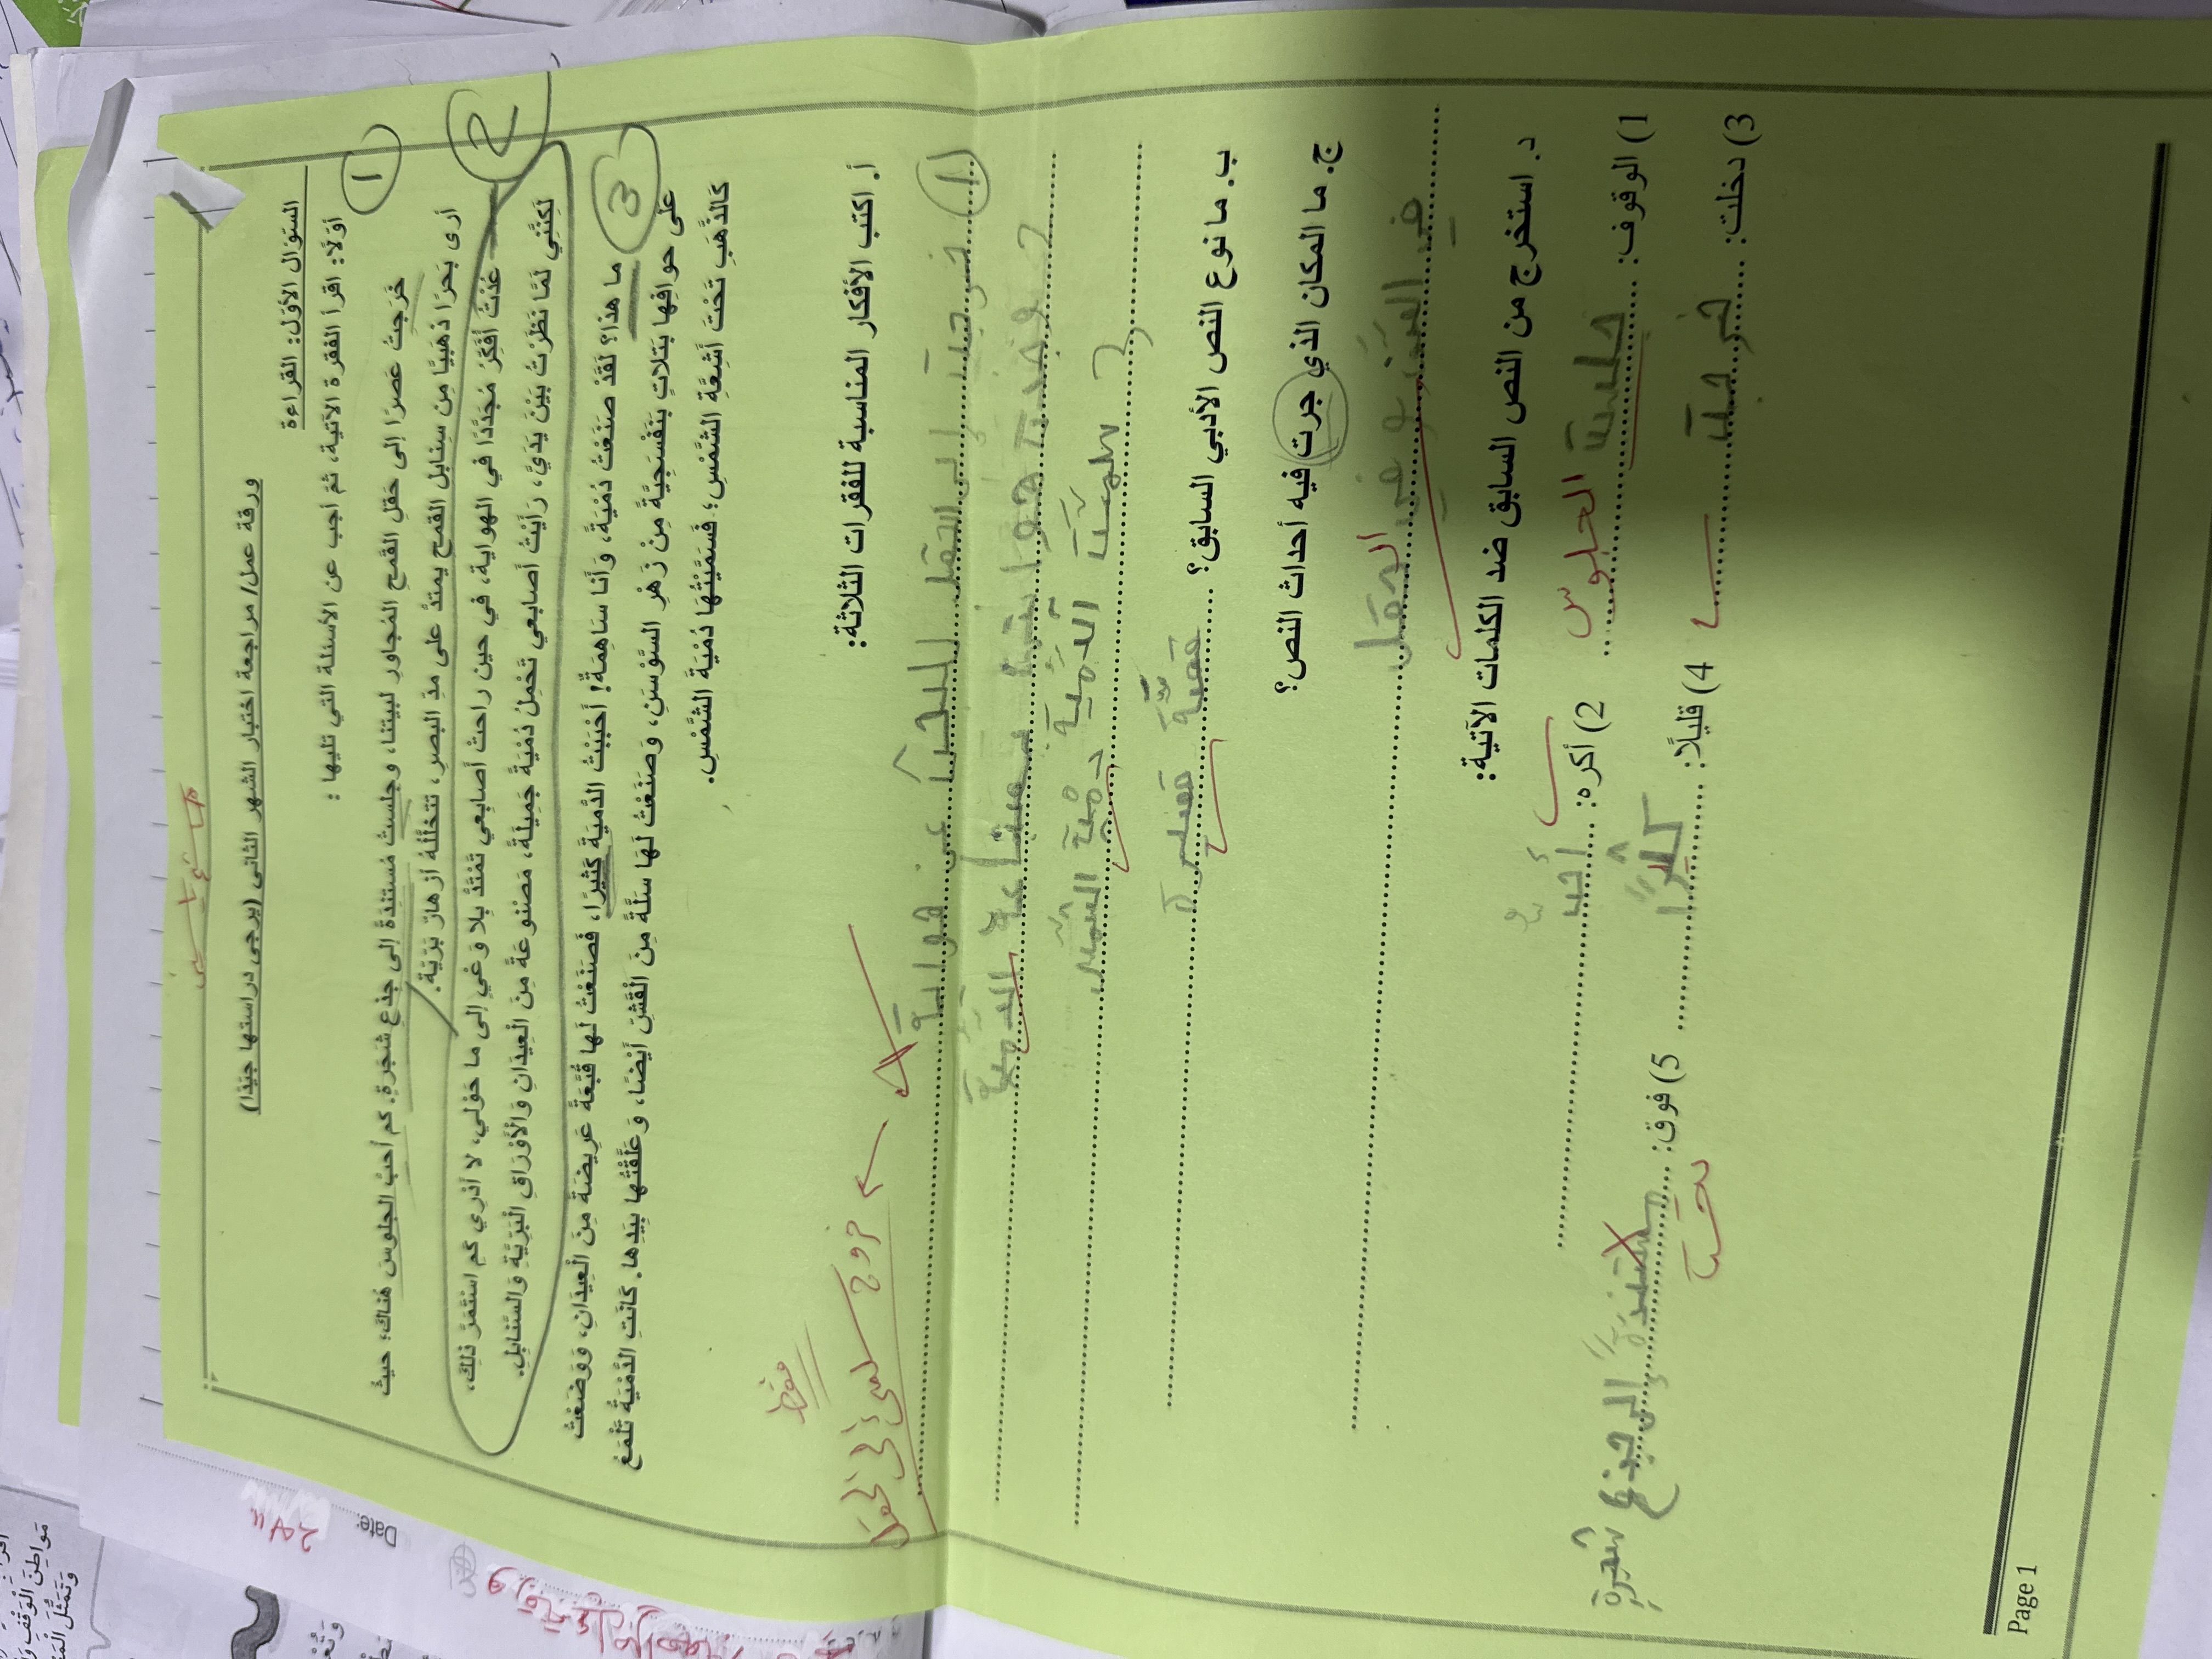 ورقة عمل/ مراجعة اختبار الشهر الثاني (يرجى دراستها جيّدًا)
السؤال الأوّل: القراءة
أوّلًا: اقرأ الفقرة الآتية، ثمّ أجب عن الأسئلة التي تليها :
1
خَرَجتُ عَصرًا إلى حَقلِ القَمحِ المُجاورِ لبيتنا، وجلستُ مُستندةً إلى جذعِ شجرةٍ. كم أحبّ الجلوس هُناك؛ حيثُ
أرى بَحرًا ذهبيًّا مِن سنابل القمح يمتدّ على مدّ البصر، تتخلّلهُ أزهارٌ برّيّة.
2
عُدْتُ أُفَكِّرُ مُجَدَّدًا في الهواية، في حين راحتْ أصابعي تَمْتَدُّ بِلا وَعْيٍ إلى ما حَوْلي، لا أدْري كم استَمَرَّ ذلِكَ،
لكِنَّني لَمّا نَظَرْتُ بَيْنَ يَدَيَّ، رَأَيْتُ أصابعي تَحْمِلُ دُمْيَةً جَميلَةً، مَصْنوعَةً مِنَ الْعيدانِ وَالْأَوْراقِ الْبَرّيَّةِ وَالسَّنابِلِ.
3
ما هذا؟ لَقَدْ صَنَعْتُ دُمْيَةً، وَأَنا ساهِمَةٌ! أَحْبَبْتُ الدُّمْيَةَ كَثيرًا، فَصَنَعْتُ لَها قُبَّعَةً عَريضَةً مِنَ الْعيدانِ، وَوَضَعْتُ
عَلى حوافِها بَتَلاتٍ بَنَفْسَجِيَّةً مِنْ زَهْرِ السَّوْسَنِ، وَصَنَعْتُ لَها سَلَّةً مِنَ الْقَشِّ أَيْضًا، وَعَلَّقْتُها بِيَدِها. كانَتِ الدُّمْيَةُ تَلْمَعُ
كَالذَّهَبِ تَحْتَ أَشِعَّةِ الشَّمْسِ؛ فَسَمَّيْتُها دُمْيَةَ الشَّمْسِ.
فقط
أ. اكتب الأفكار المناسبة للفقرات الثلاثة:
خروج سلمى إلى الحقل
1 خرجت إلى الحقل للبحث عن هواية
2
3 سمت الدمية دمية الشمس
ب. ما نوع النص الأدبي السابق؟ قصة
ج. ما المكان الذي جرت فيه أحداث النص؟
في المزرعة في الحقل
د. استخرج من النص السابق ضد الكلمات الآتية:
1) الوقوف: جلست الجلوس 2) أكره: أحب
3) دخلت: خرجت 4) قليلًا: كثيرًا 5) فوق: مستندة إلى جذع شجرة
تحت
Page 1
Date: